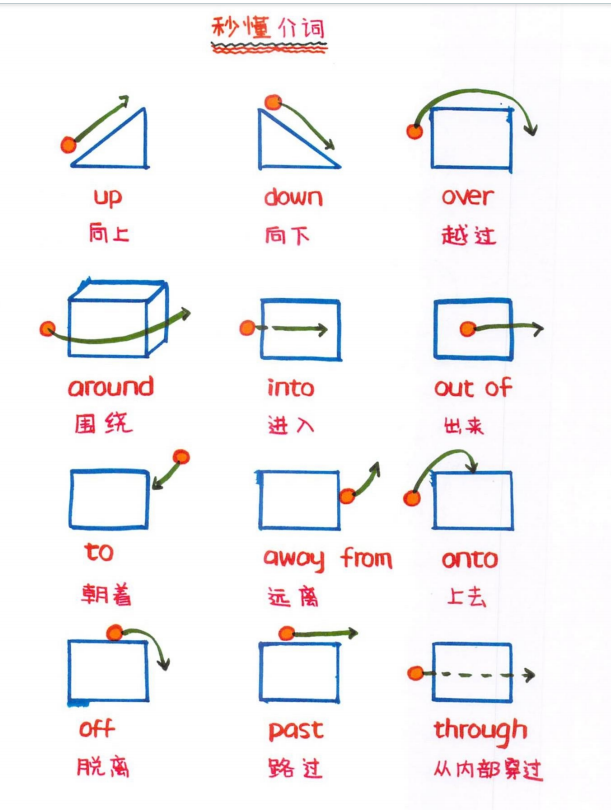 秒懂介词
up
向上
down
向下
over
越过
around
围绕
into
进入
out of
出来
to
朝着
away from
远离
onto
上去
off
脱离
past
路过
through
从内部穿过